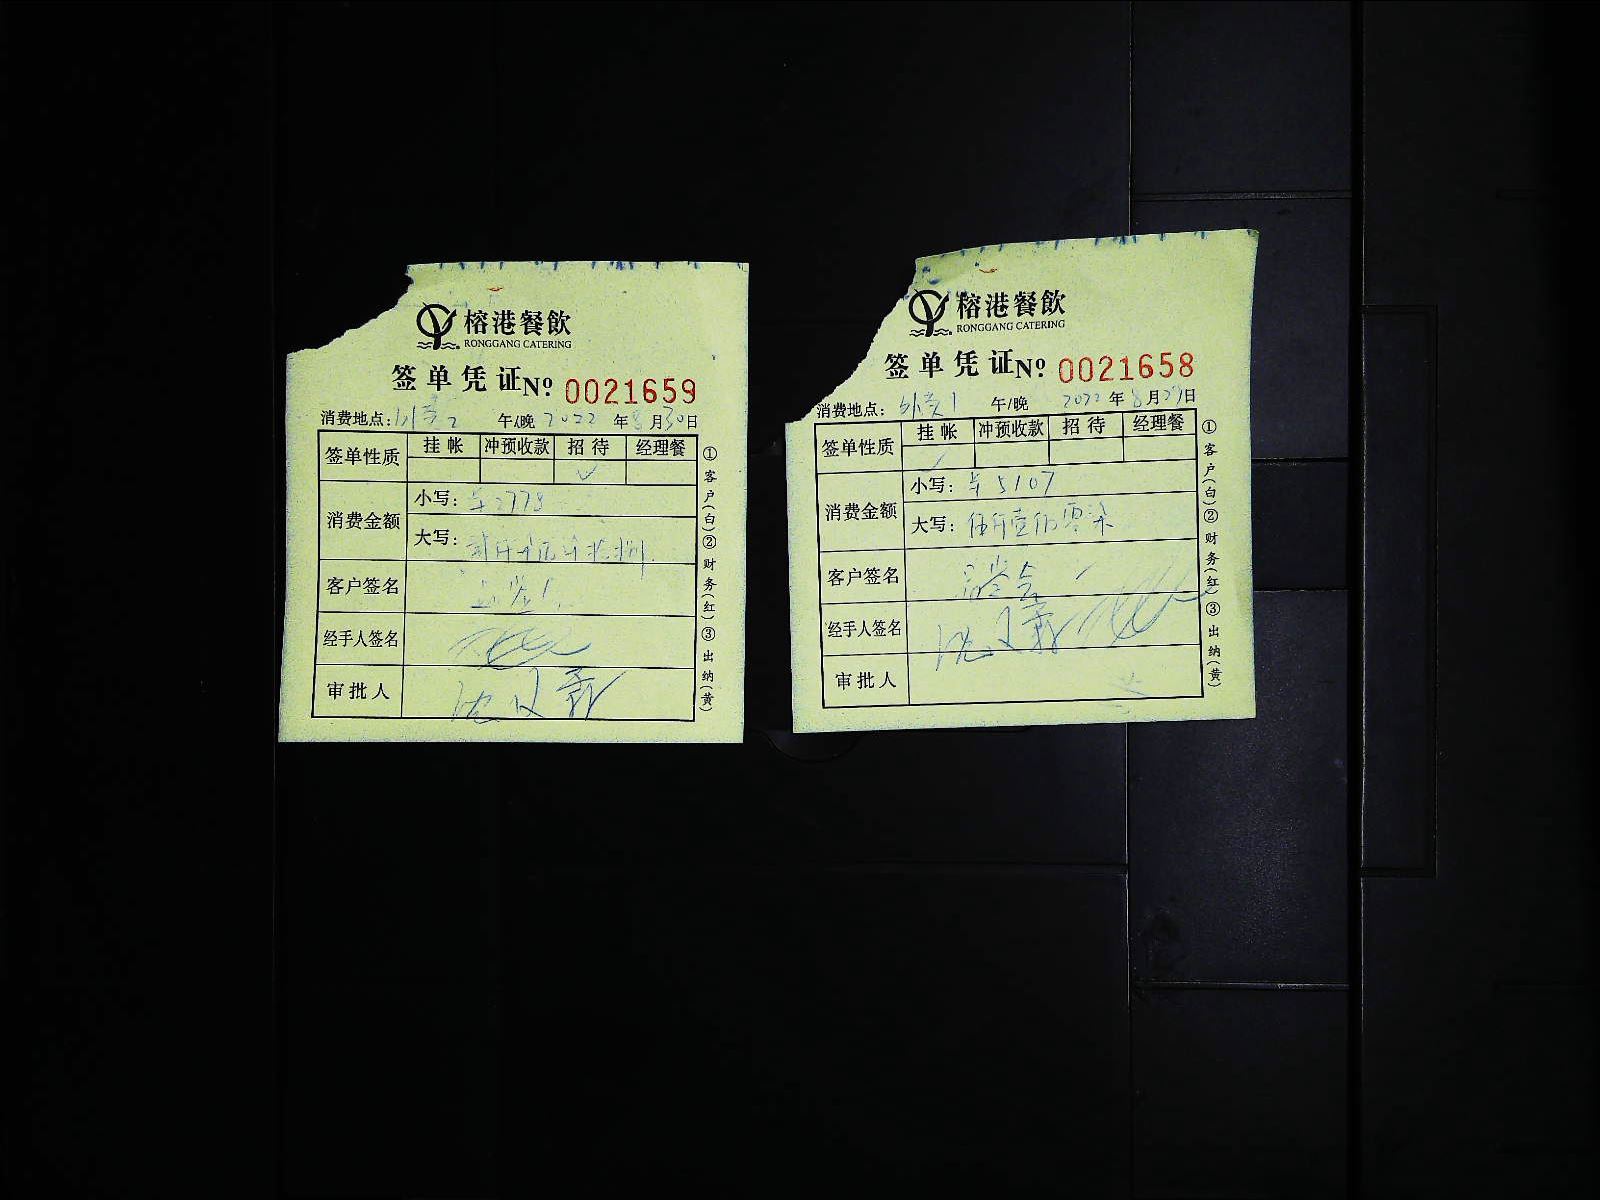 榕港餐飲
RONGGANG CATERING
签单凭证 Nº 0021659
消费地点: 2 午/晚 2022 年 8 月 30 日
签单性质 挂帐 冲预收款 招待 经理餐
✓
消费金额 小写: ¥2778
大写:
客户签名
经手人签名
审批人
①客户(白)②财务(红)③出纳(黄)
榕港餐飲
RONGGANG CATERING
签单凭证 Nº 0021658
消费地点: 1 午/晚 2022 年 8 月 29 日
签单性质 挂帐 冲预收款 招待 经理餐
✓
消费金额 小写: ¥5107
大写: 伍仟壹佰零柒
客户签名
经手人签名
审批人
①客户(白)②财务(红)③出纳(黄)